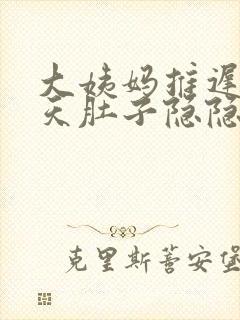 大姨妈推迟
天肚子隐隐
克里斯蒂安堡